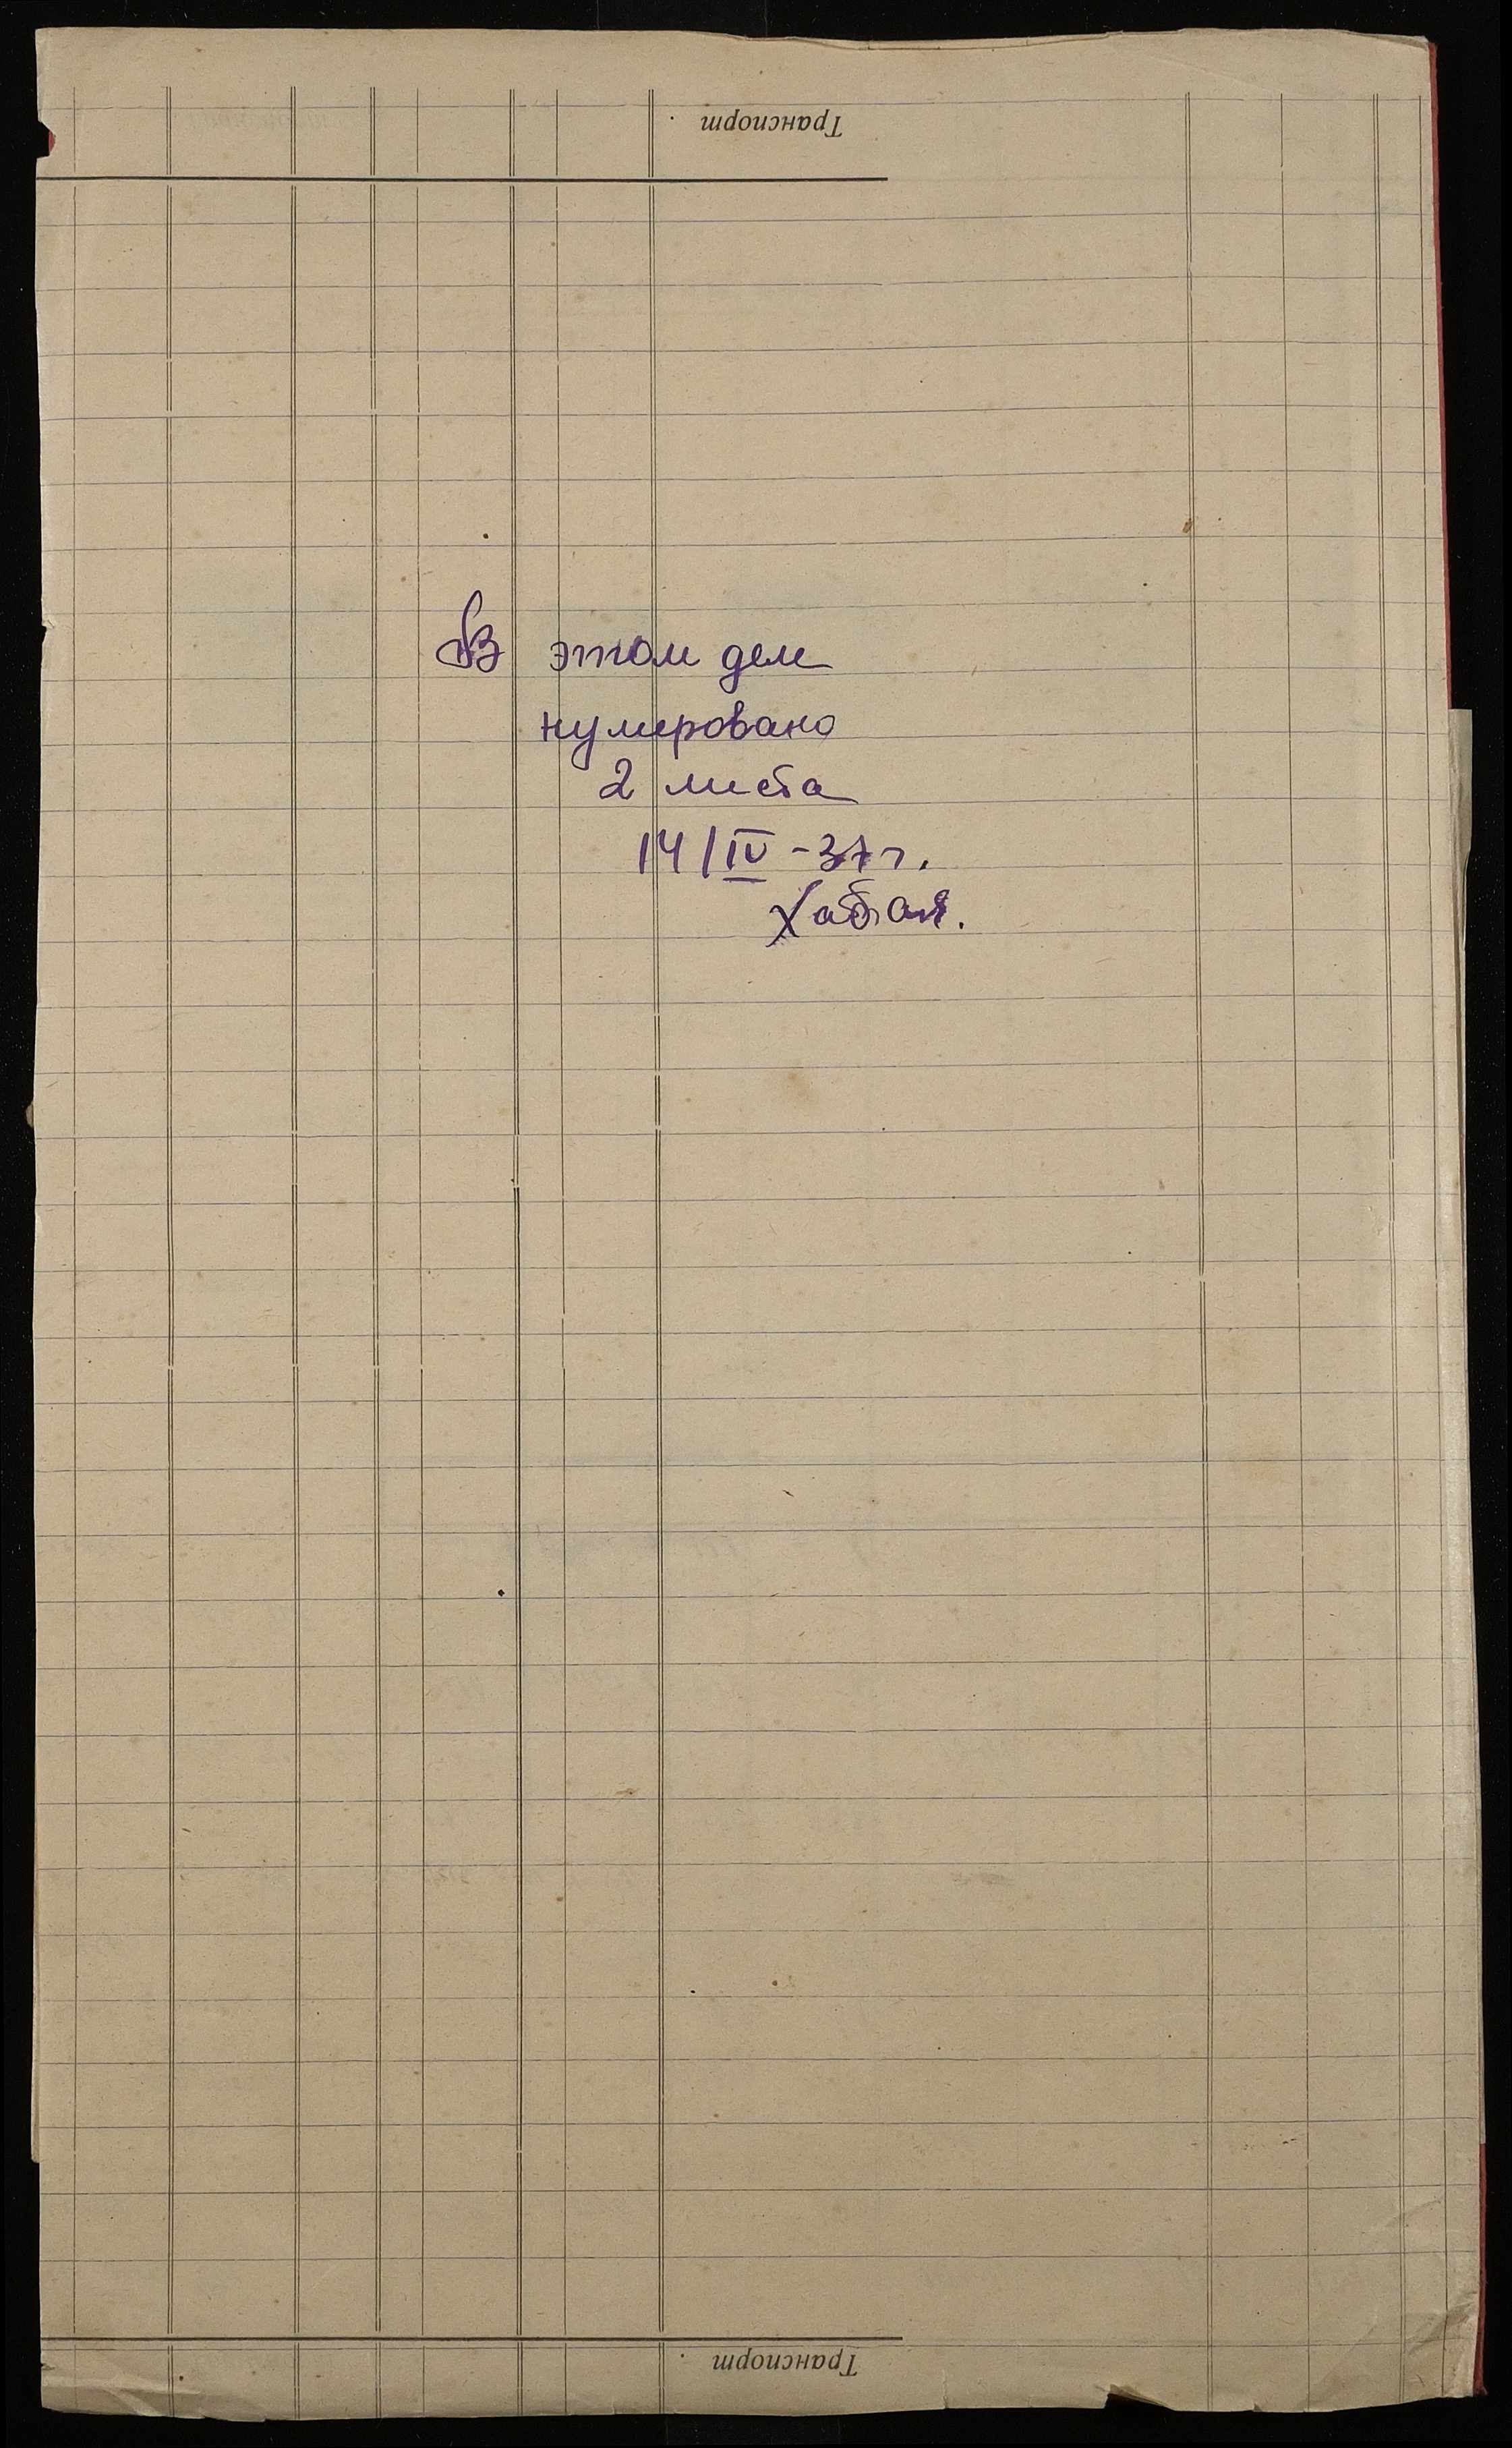 Транспорт
В этом деле
нумеровано
2 листа
14/IV-37 г.
Транспорт